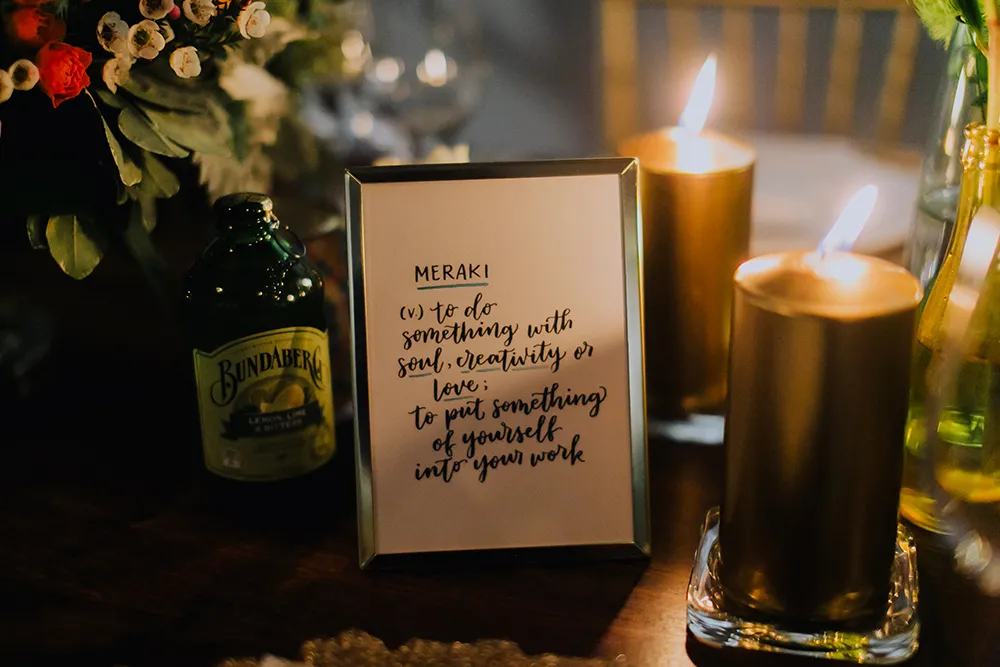 MERAKI
(v.) to do
something with
soul, creativity or
love;
to put something
of yourself
into your work
BUNDABERG
LEMON, LIME
& BITTERS